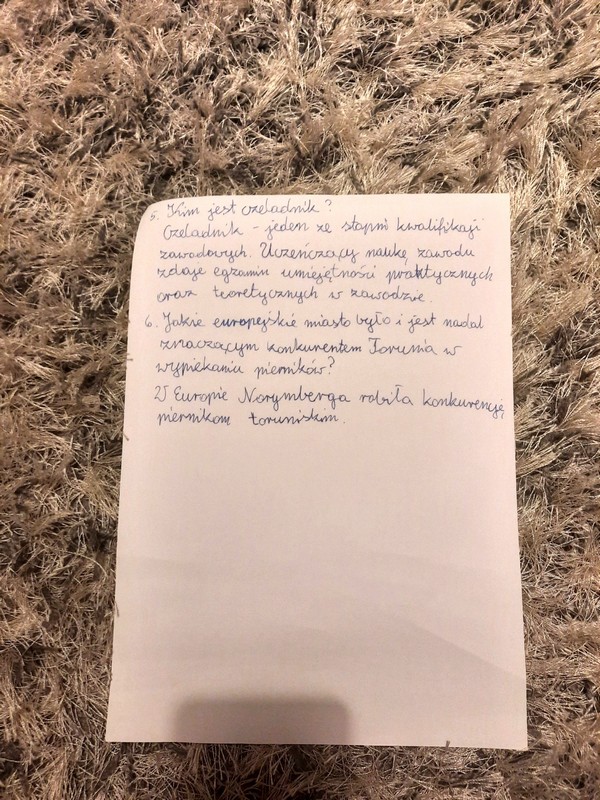 5. Kim jest czeladnik?
Czeladnik - jeden ze stopni kwalifikacji
zawodowych. Uczeńczący naukę zawodu
zdaje egzamin umiejętności praktycznych
oraz teoretycznych w zawodzie.
6. Jakie europejskie miasto było i jest nadal
znaczącym konkurentem Torunia w
wypiekaniu pierników?
W Europie Norymberga robiła konkurencję
piernikom toruńskim.